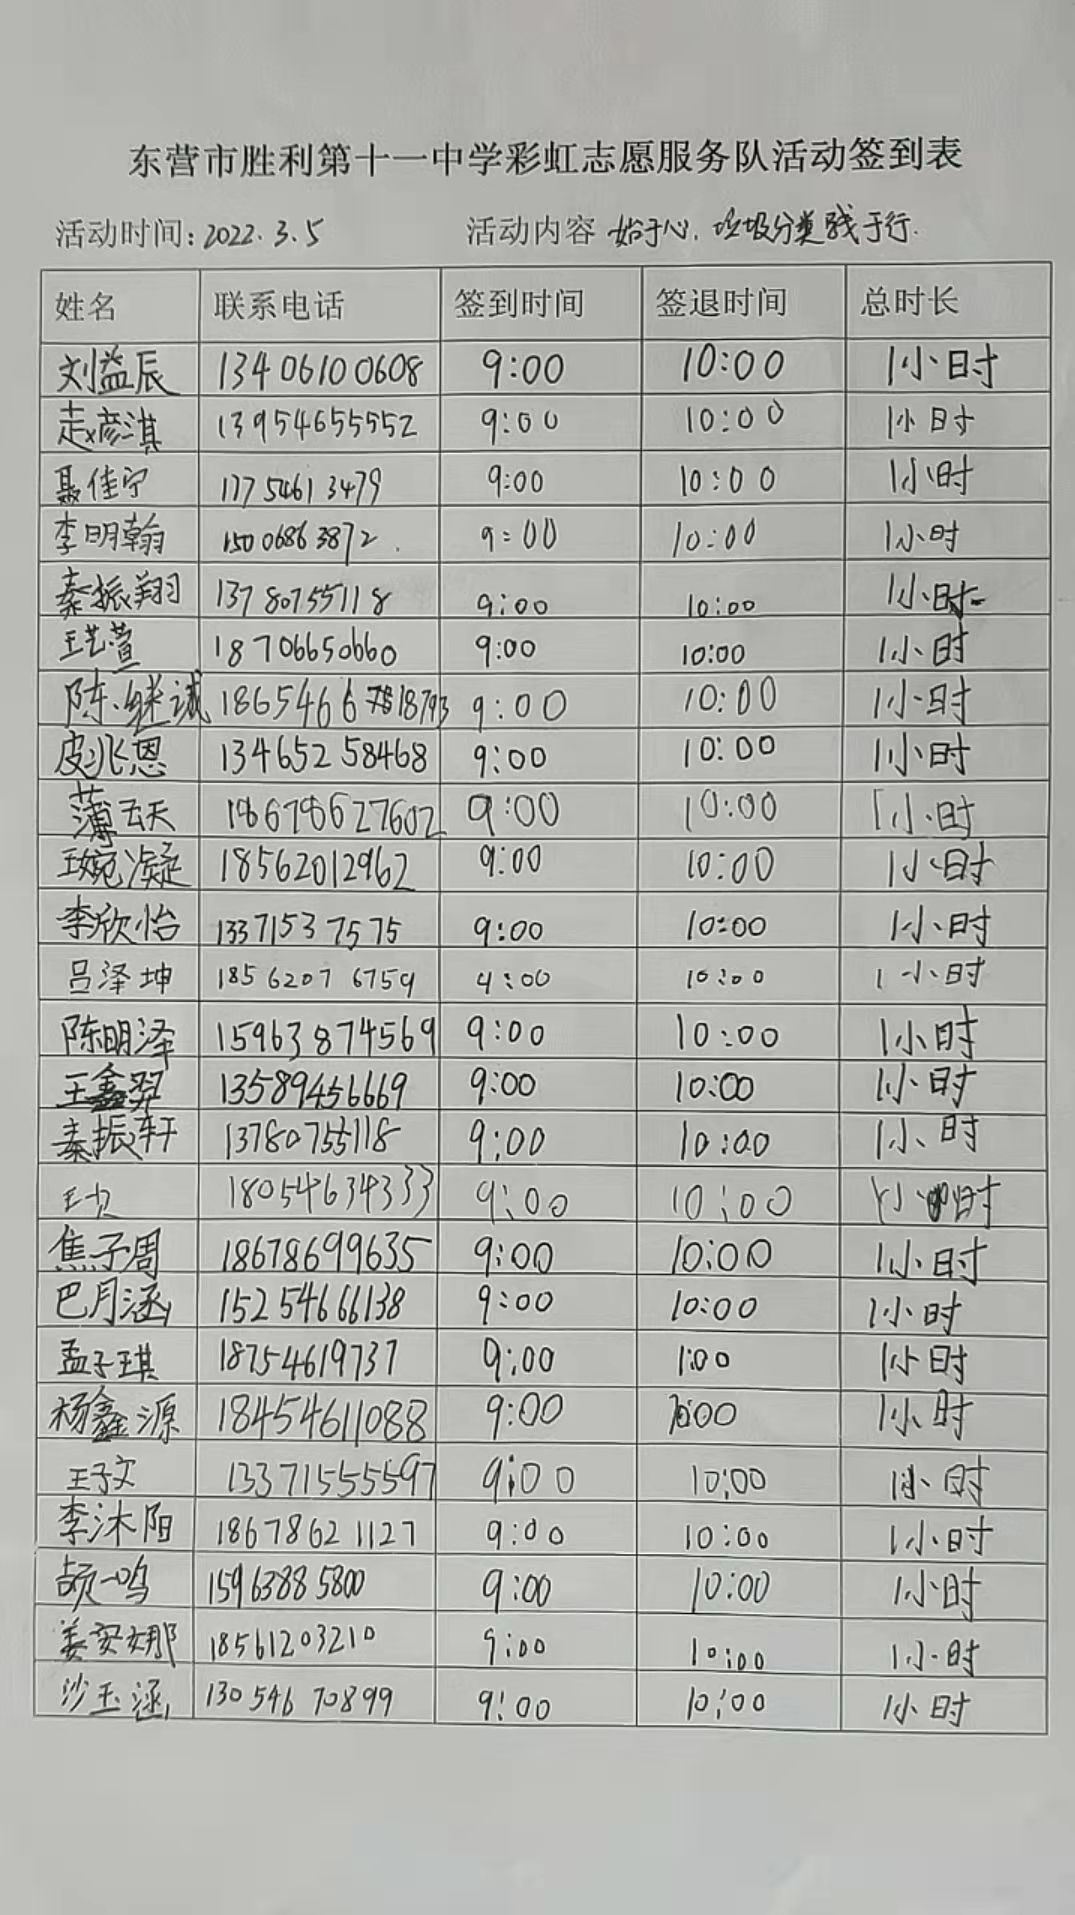 东营市胜利第十一中学彩虹志愿服务队活动签到表
活动时间:2022.3.5 活动内容 始于心,垃圾分类践于行.
姓名 联系电话 签到时间 签退时间 总时长
刘益辰 13406100608 9:00 10:00 1小时
赵彦淇 13954655552 9:00 10:00 1小时
聂佳宁 17754613479 9:00 10:00 1小时
李明翰 15006863872. 9:00 10:00 1小时
秦振翔 13780755118 9:00 10:00 1小时
王艺萱 18706650660 9:00 10:00 1小时
陈继诚 1865466 18793 9:00 10:00 1小时
皮兆恩 13465258468 9:00 10:00 1小时
薄云天 18678627602 9:00 10:00 1小时
王婉凝 18562012962 9:00 10:00 1小时
李欣怡 13371537575 9:00 10:00 1小时
吕泽坤 18562076759 9:00 10:00 1小时
陈明泽 15963874569 9:00 10:00 1小时
王鑫羿 13589456669 9:00 10:00 1小时
秦振轩 13780755118 9:00 10:00 1小时
18054634333 9:00 10:00 1小时
焦子周 18678699635 9:00 10:00 1小时
巴月涵 15254666138 9:00 10:00 1小时
孟子琪 18754619737 9:00 1:00 1小时
杨鑫源 18454611088 9:00 10:00 1小时
王子文 13371555597 9:00 10:00 1小时
李沐阳 18678621127 9:00 10:00 1小时
颉一鸣 15963885800 9:00 10:00 1小时
姜安娜 18561203210 9:00 10:00 1小时
沙玉涵 13054670899 9:00 10:00 1小时